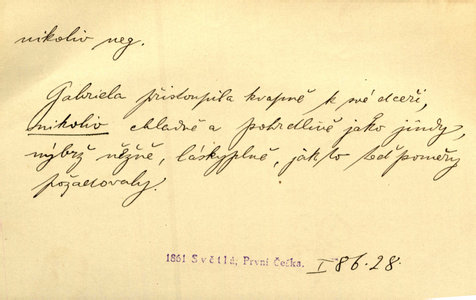 nikoliv neg.
Gabriela přistoupila kvapně k své dceři,
nikoliv chladně a pohrdlivě jako jindy,
nýbrž něžně, láskyplně, jak to teď poměry
požadovaly.
1861 Světlá, První Češka. I 86.28.